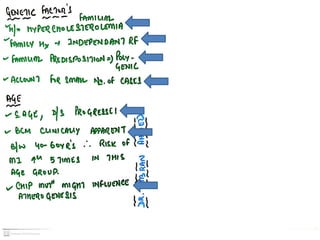 GENETIC FACTOR'S
FAMILIAL
H/O HYPERCHOLESTEROLEMIA
FAMILY Hx → INDEPENDANT RF
FAMILIAL PREDISPOSITION => POLY-
GENIC
ACCOUNT FOR SMALL No. OF CASES
AGE
AGE, D/S PROGRESSES
BCM CLINICALLY APPARENT
B/W 40-60 YR'S ∴ RISK OF
MI 5 TIMES IN THIS
AGE GROUP.
CHIP mutn MIGHT INFLUENCE
ATHEROGENESIS
DR. AHMED